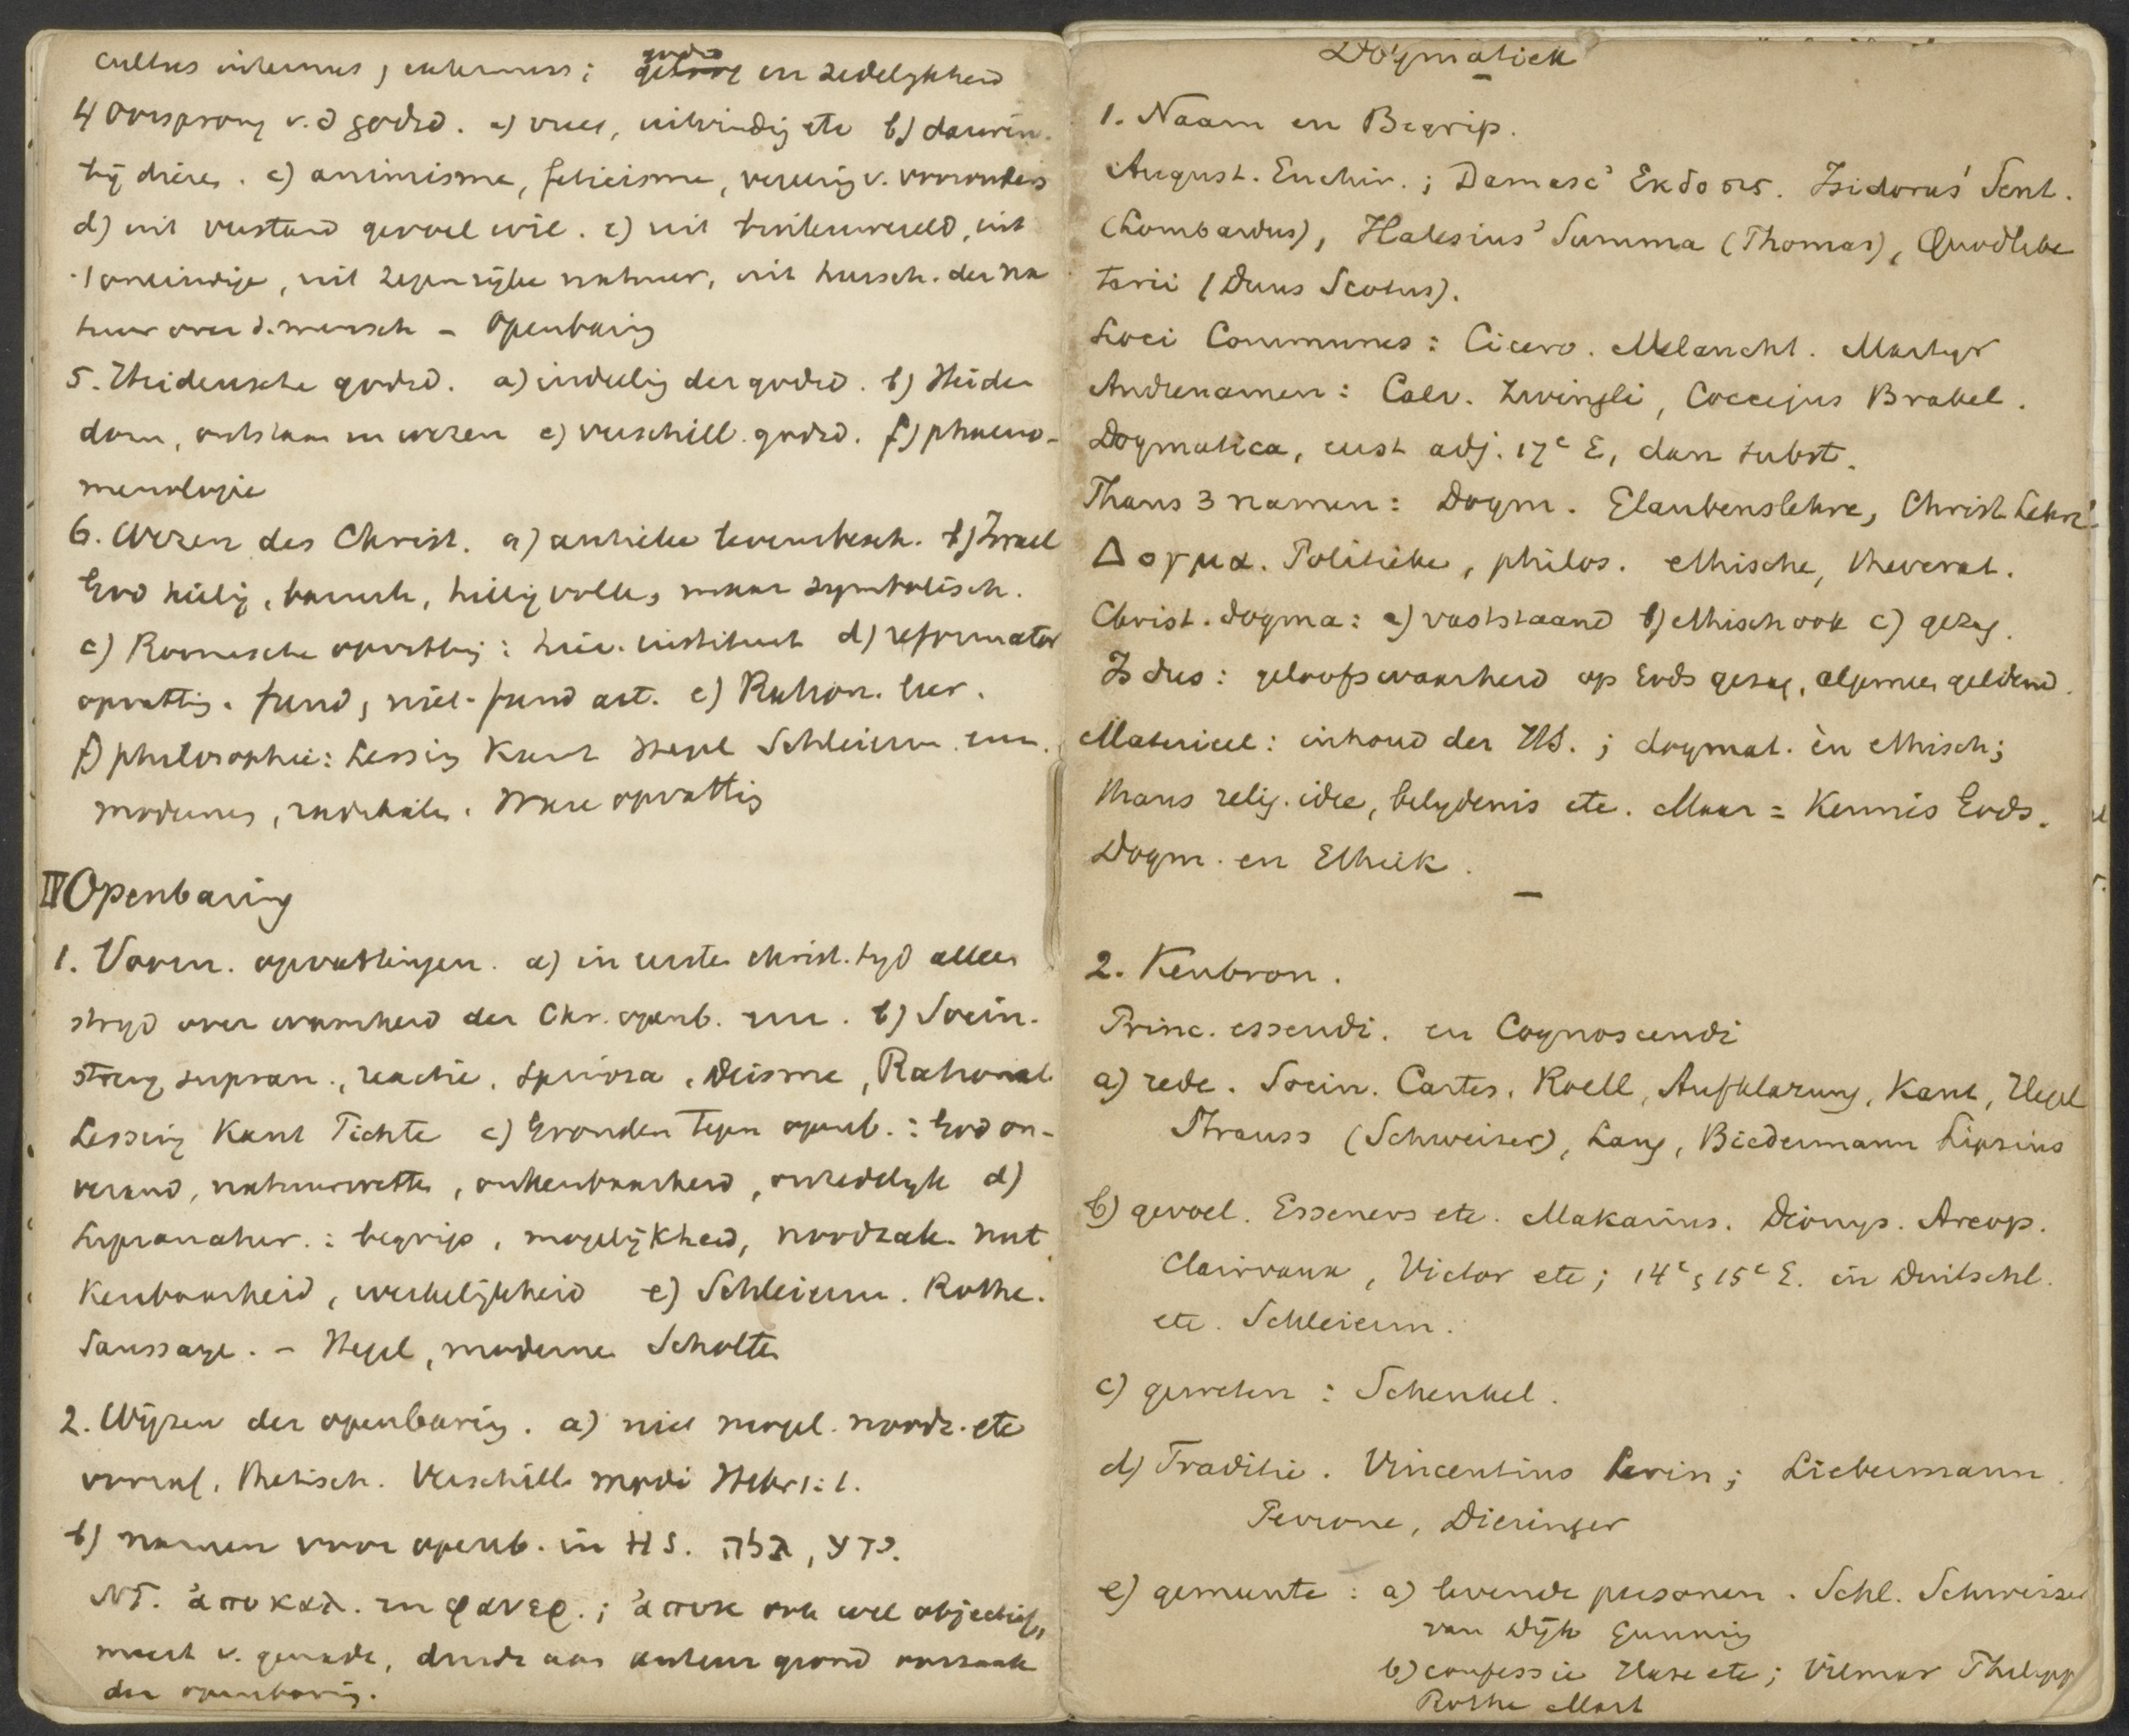 cultus internus, externus; godsd en zedelykheid
4 Oorsprong v.d godsd. a) vrees, uitvinding etc b)
bij dieren. c) animisme, feticisme, vereering v. voorouders
d) uit verstand gevoel wil. e) uit buitenwereld, uit
't oneindige, uit zegenrijke natuur, uit heersch. der na
tuur over d. mensch – Openbaring
5. Heidensche godsd. a) indeeling der godsd. b) Heiden
dom, ontstaan en wezen c) verschill. godsd. f) phaeno-
menologie
6. Wezen des Christ. a) antieke levensbesch. b) Israel
God heilig, heilig volk, maar symbolisch.
c) Roomsche opvatting: hier. instituut d) reformator
opvatting. fund, niet-fund art. e) Ration. leer.
f) philosophie: Lessing Kant Hegel Schleierm. enz.
modernen, radikalen. Ware opvatting
IV Openbaring
1. Voorn. opvattingen. a) in eerste christ. tyd alleen
stryd over waarheid der Chr. openb. enz. b) Socin.
streng supran., reactie, Spinoza, Deisme, Rational
Lessing Kant Fichte c) Gronden tegen openb.: God on-
verand, natuurwetten, onkenbaarheid, onzedelyk d)
Supranatur.: begrip, mogelijkheid, noodzak. nut
Kenbaarheid, werkelijkheid e) Schleierm. Rothe.
Saussaye. – Hegel, moderne Scholten
2. Wijzen der openbaring. a) niet mogel. noodz. etc
vooraf. thetisch. Verschill. modi Hebr 1:1.
b) namen voor openb. in HS. גלה, ידע.
NT. ἀποκαλ. en φανερ.; ἀποκ ook wel objectief,
meest v. genade, derde aan auteur grond oorzaak
der openbaring.
Dogmatiek
1. Naam en Begrip.
August. Enchir.; Damasc' Εκδοσις. Isidorus' Sent.
(Lombardus), Halesius' Summa (Thomas), Quodlibe
tarii (Duns Scotus).
Loci Communes: Cicero. Melancht. Martyr
Andre namen: Calv. Zwingli, Coccejus Brakel.
Dogmatica, eerst adj. 17e E, dan subst.
Thans 3 namen: Dogm. Glaubenslehre, Christ Lehre
Δογμα. Politieke, philos. ethische, theoret.
Christ. dogma: a) vaststaand b) ethisch ook c) gezag.
Is dus: geloofswaarheid op Gods gezag, algemeen geldend.
Materieel: inhoud der HS.; dogmat. èn ethisch;
thans relig. idee, belydenis etc. Maar = Kennis Gods.
Dogm. en Ethiek.
2. Kenbron.
Princ. essendi. en Cognoscendi
a) rede. Socin. Cartes. Roell, Aufklarung, Kant, Hegel
Strauss (Schweizer), Lang, Biedermann Lipsius
b) gevoel. Esseners etc. Makarius. Dionys. Areop.
Clairvaux, Victor etc; 14e, 15e E. in Duitschl.
etc. Schleierm.
c) geweten: Schenkel.
d) Traditie. Vincentius Lerin; Liebermann
Perrone, Dieringer
e) gemeente: a) levende personen. Schl. Schweizer
van Dijk Gunning
b) confessie Hase etc; Vilmar Philippi
Rothe Mart